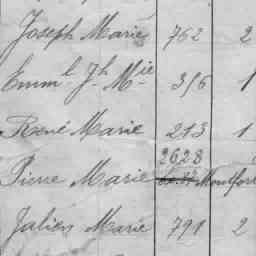 Joseph Marie 762 2
Emm.l Jh Mie 316 1
René Marie 213 1
2628
Pierre Marie Montfort
Julien Marie 791 2